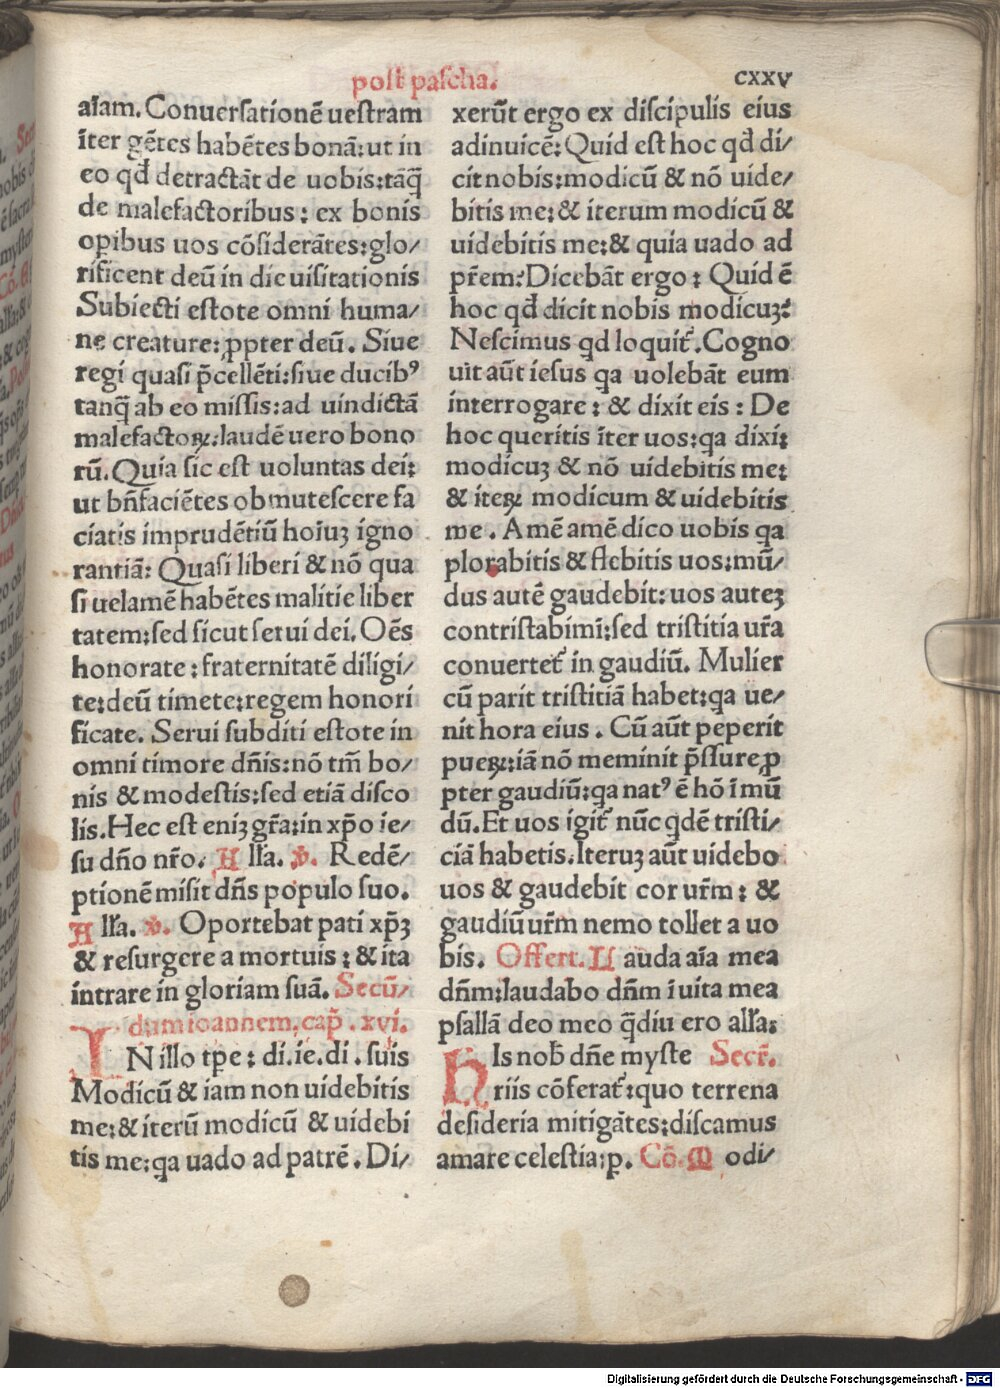 post pascha.
CXXV
aīam. Conuersationē uestram
īter gētes habētes bonā: ut in
eo qđ detractāt de uobis: tāq̄
de malefactoribus: ex bonis
opibus uos cōsiderātes: glo/
rificent deū in die uisitationis
Subiecti estote omni huma/
ne creature: ꝓpter deū. Siue
regi quasi p̄cellēti: siue ducibꝰ
tanq̄ ab eo missis: ad uindictā
malefactoꝝ: laudē uero bono
rū. Quia sic est uoluntas dei:
ut bn̄faciētes obmutescere fa
ciatis imprudētiū hoiuꝫ igno
rantiā: Quasi liberi & nō qua
si uelamē habētes malitie liber
tatem: sed sicut serui dei. Oēs
honorate: fraternitatē diligi/
te: deū timete: regem honori
ficate. Serui subditi estote in
omni timore dn̄is: nō tm̄ bo/
nis & modestis: sed etiā disco
lis. Hec est eniꝫ gr̄a: in xp̄o ie/
su dn̄o nr̄o. All'a. ꝟ. Redē/
ptionē misit dn̄s populo suo.
All'a. ꝟ. Oportebat pati xp̄ꝫ
& resurgere a mortuis: & ita
intrare in gloriam suā. Secū/
dum ioannem. cap̄. xvi.
IN illo tꝑe: di. ie. di. suis
Modicū & iam non uidebitis
me: & iterū modicū & uidebi
tis me: qa uado ad patrē. Di/
xerūt ergo ex discipulis eius
adinuicē: Quid est hoc qđ di/
cit nobis: modicū & nō uide/
bitis me: & iterum modicū &
uidebitis me: & quia uado ad
pr̄em? Dicebāt ergo: Quid ē
hoc qđ dicit nobis modicuꝫ?
Nescimus qd loquit᷑. Cogno
uit aūt iesus qa uolebāt eum
interrogare: & dixit eis: De
hoc queritis īter uos: qa dixi:
modicuꝫ & nō uidebitis me:
& iteꝝ modicum & uidebitis
me. Amē amē dico uobis qa
plorabitis & flebitis uos: mū/
dus autē gaudebit: uos auteꝫ
contristabimī: sed tristitia ur̄a
conuertet᷑ in gaudiū. Mulier
cū parit tristitiā habet: qa ue/
nit hora eius. Cū aūt peperit
pueꝝ: iā nō meminit p̄ssure ꝓ
pter gaudiū: qa natꝰ ē hō ī mū
dū. Et uos igit᷑ nūc qdē tristi/
ciā habetis. Iteruꝫ aūt uidebo
uos & gaudebit cor ur̄m: &
gaudiū ur̄m nemo tollet a uo
bis. Offert. Lauda aīa mea
dn̄m: laudabo dn̄m ī uita mea
psallā deo meo q̄diu ero all'a:
His nob̄ dn̄e myste Secr̄.
riis cōferat᷑: quo terrena
desideria mitigātes: discamus
amare celestia: p. Cō. Modi/
Digitalisierung gefördert durch die Deutsche Forschungsgemeinschaft - DFG